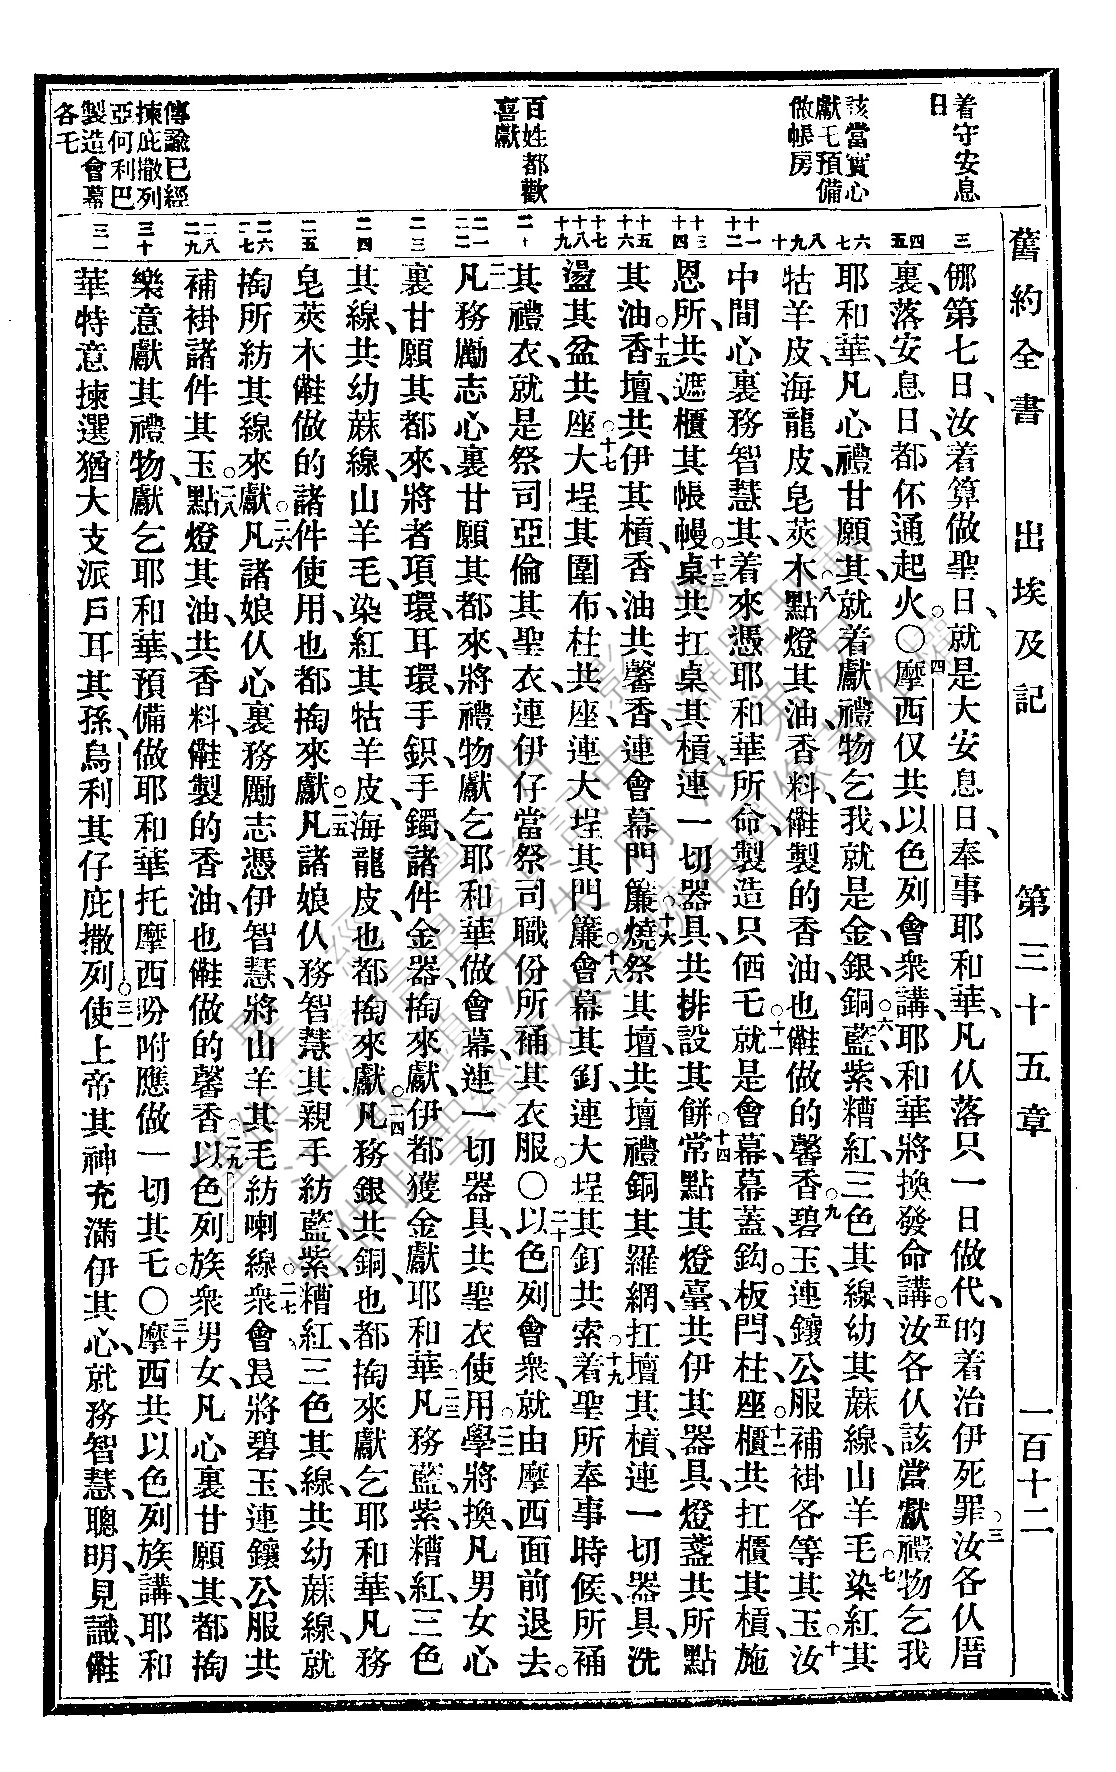 舊約全書　出埃及記　第三十五章　一百十二
着守安息
日
該當實心
獻乇預備
做帳房
百姓都歡
喜獻
傳諭已經
揀庇撒列
亞何利巴
製造會幕
各乇
㑚第七日、汝着算做聖日、就是大安息日、奉事耶和華、凡伩落只一日做代、的着治伊死罪、○三汝各伩厝
裏、落安息日、都伓通起火。○四摩西仅共以色列會衆講、耶和華將換發命講、○五汝各伩該當獻禮物乞我
耶和華、凡心禮甘願其、就着獻禮物乞我、就是金銀銅、○六藍紫糟紅三色其線、幼其蔴線、山羊毛、○七染紅其
牯羊皮、海龍皮、皂莢木、○八點燈其油、香料、做製的香油、也做的馨香、○九碧玉連鑲公服補褂各等其玉、○十汝
中間心裏務智慧其、着來憑耶和華所命製造只価乇、○十一就是會幕、幕蓋、鈎、板、閂、柱、座、○十二櫃共扛櫃其槓、施
恩所、共遮櫃其帳幔、○十三桌共扛桌其槓、連一切器具、共排設其餅、○十四常點其燈臺、共伊其器具、燈盞、共所點
其油、○十五香壇、共伊其槓、香油、共馨香、連會幕門簾、○十六燒祭其壇、共壇禮銅其羅網、扛壇其槓、連一切器具、洗
盪其盆共座、○十七大埕其圍布、柱共其座、連大埕其門簾、○十八會幕其釘、連大埕其釘共索、○十九着聖所奉事時候所䘄
其禮衣、就是祭司亞倫其聖衣、連伊仔當祭司職份所䘄其衣服。○二十以色列會衆、就由摩西面前退去。
○二一凡務勵志心裏甘願其、都來、將禮物獻乞耶和華、做會幕、連一切器具、共聖衣使用、○二二學將換、凡男女心
裏甘願其、都來、將者項環、耳環、手鉙、手鐲、諸件金器掏來獻、伊都獲金獻耶和華、○二三凡務藍、紫、糟紅三色
其線、共幼蔴線、山羊毛、染紅其牯羊皮、海龍皮、也都掏來獻、○二四凡務銀共銅、也都掏來獻乞耶和華、凡務
皂莢木、做做的諸件使用、也都掏來獻、○二五凡諸娘伩務智慧其、親手紡藍、紫、糟紅三色其線、共幼蔴線、就
掏所紡其線來獻、○二六凡諸娘伩心裏務勵志、憑伊智慧、將山羊其毛紡喇線、○二七衆會長將碧玉、連鑲公服共
補褂諸件其玉、○二八點燈其油、共香料、做製的香油、也做做的馨香、○二九以色列族衆男女、凡心裏甘願其、都掏
樂意獻其禮物、獻乞耶和華、預備做耶和華托摩西吩咐應做一切其乇。○三十摩西共以色列族講、耶和
華特意揀選猶大支派戶耳其孫、烏利其仔庇撒列、○三一使上帝其神充滿伊其心、就務智慧、聰明、見識、做